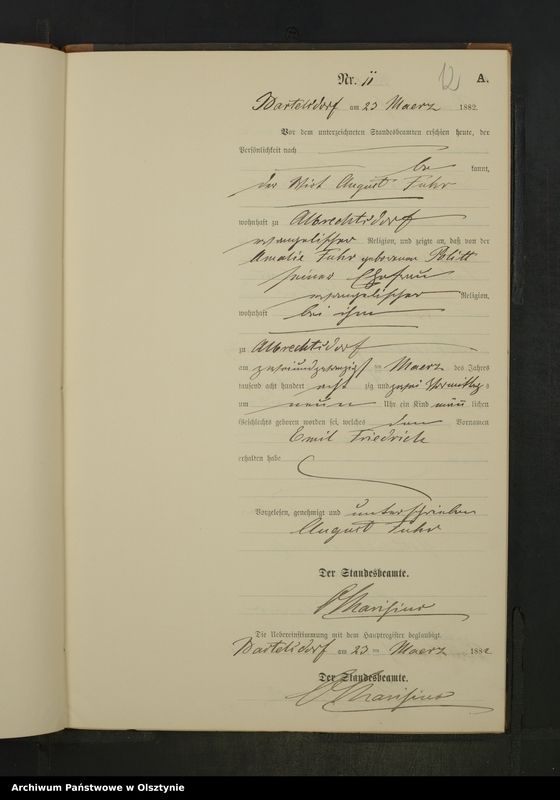 Nr. 11 12 A.
Bartelsdorf am 23 Maerz 1882.
Vor dem unterzeichneten Standesbeamten erschien heute, der
Persönlichkeit nach
be kannt,
der Wirt August Fuhr
wohnhaft zu Albrechtsdorf
evangelischer Religion, und zeigte an, daß von der
Amalie Fuhr geborenen
seiner Ehefrau
evangelischer Religion,
wohnhaft bei ihm
zu Albrechtsdorf
am zweiundzwanzigst en Maerz des Jahres
tausend acht hundert acht zig und zwei Vormittag s
um neun Uhr ein Kind männ lichen
Geschlechts geboren worden sei, welches den Vornamen
Emil Friedrich
erhalten habe
Vorgelesen, genehmigt und unterschrieben
August Fuhr
Der Standesbeamte.
Die Uebereinstimmung mit dem Hauptregister beglaubigt.
Bartelsdorf am 23 ten Maerz 1882
Der Standesbeamte.
Archiwum Państwowe w Olsztynie